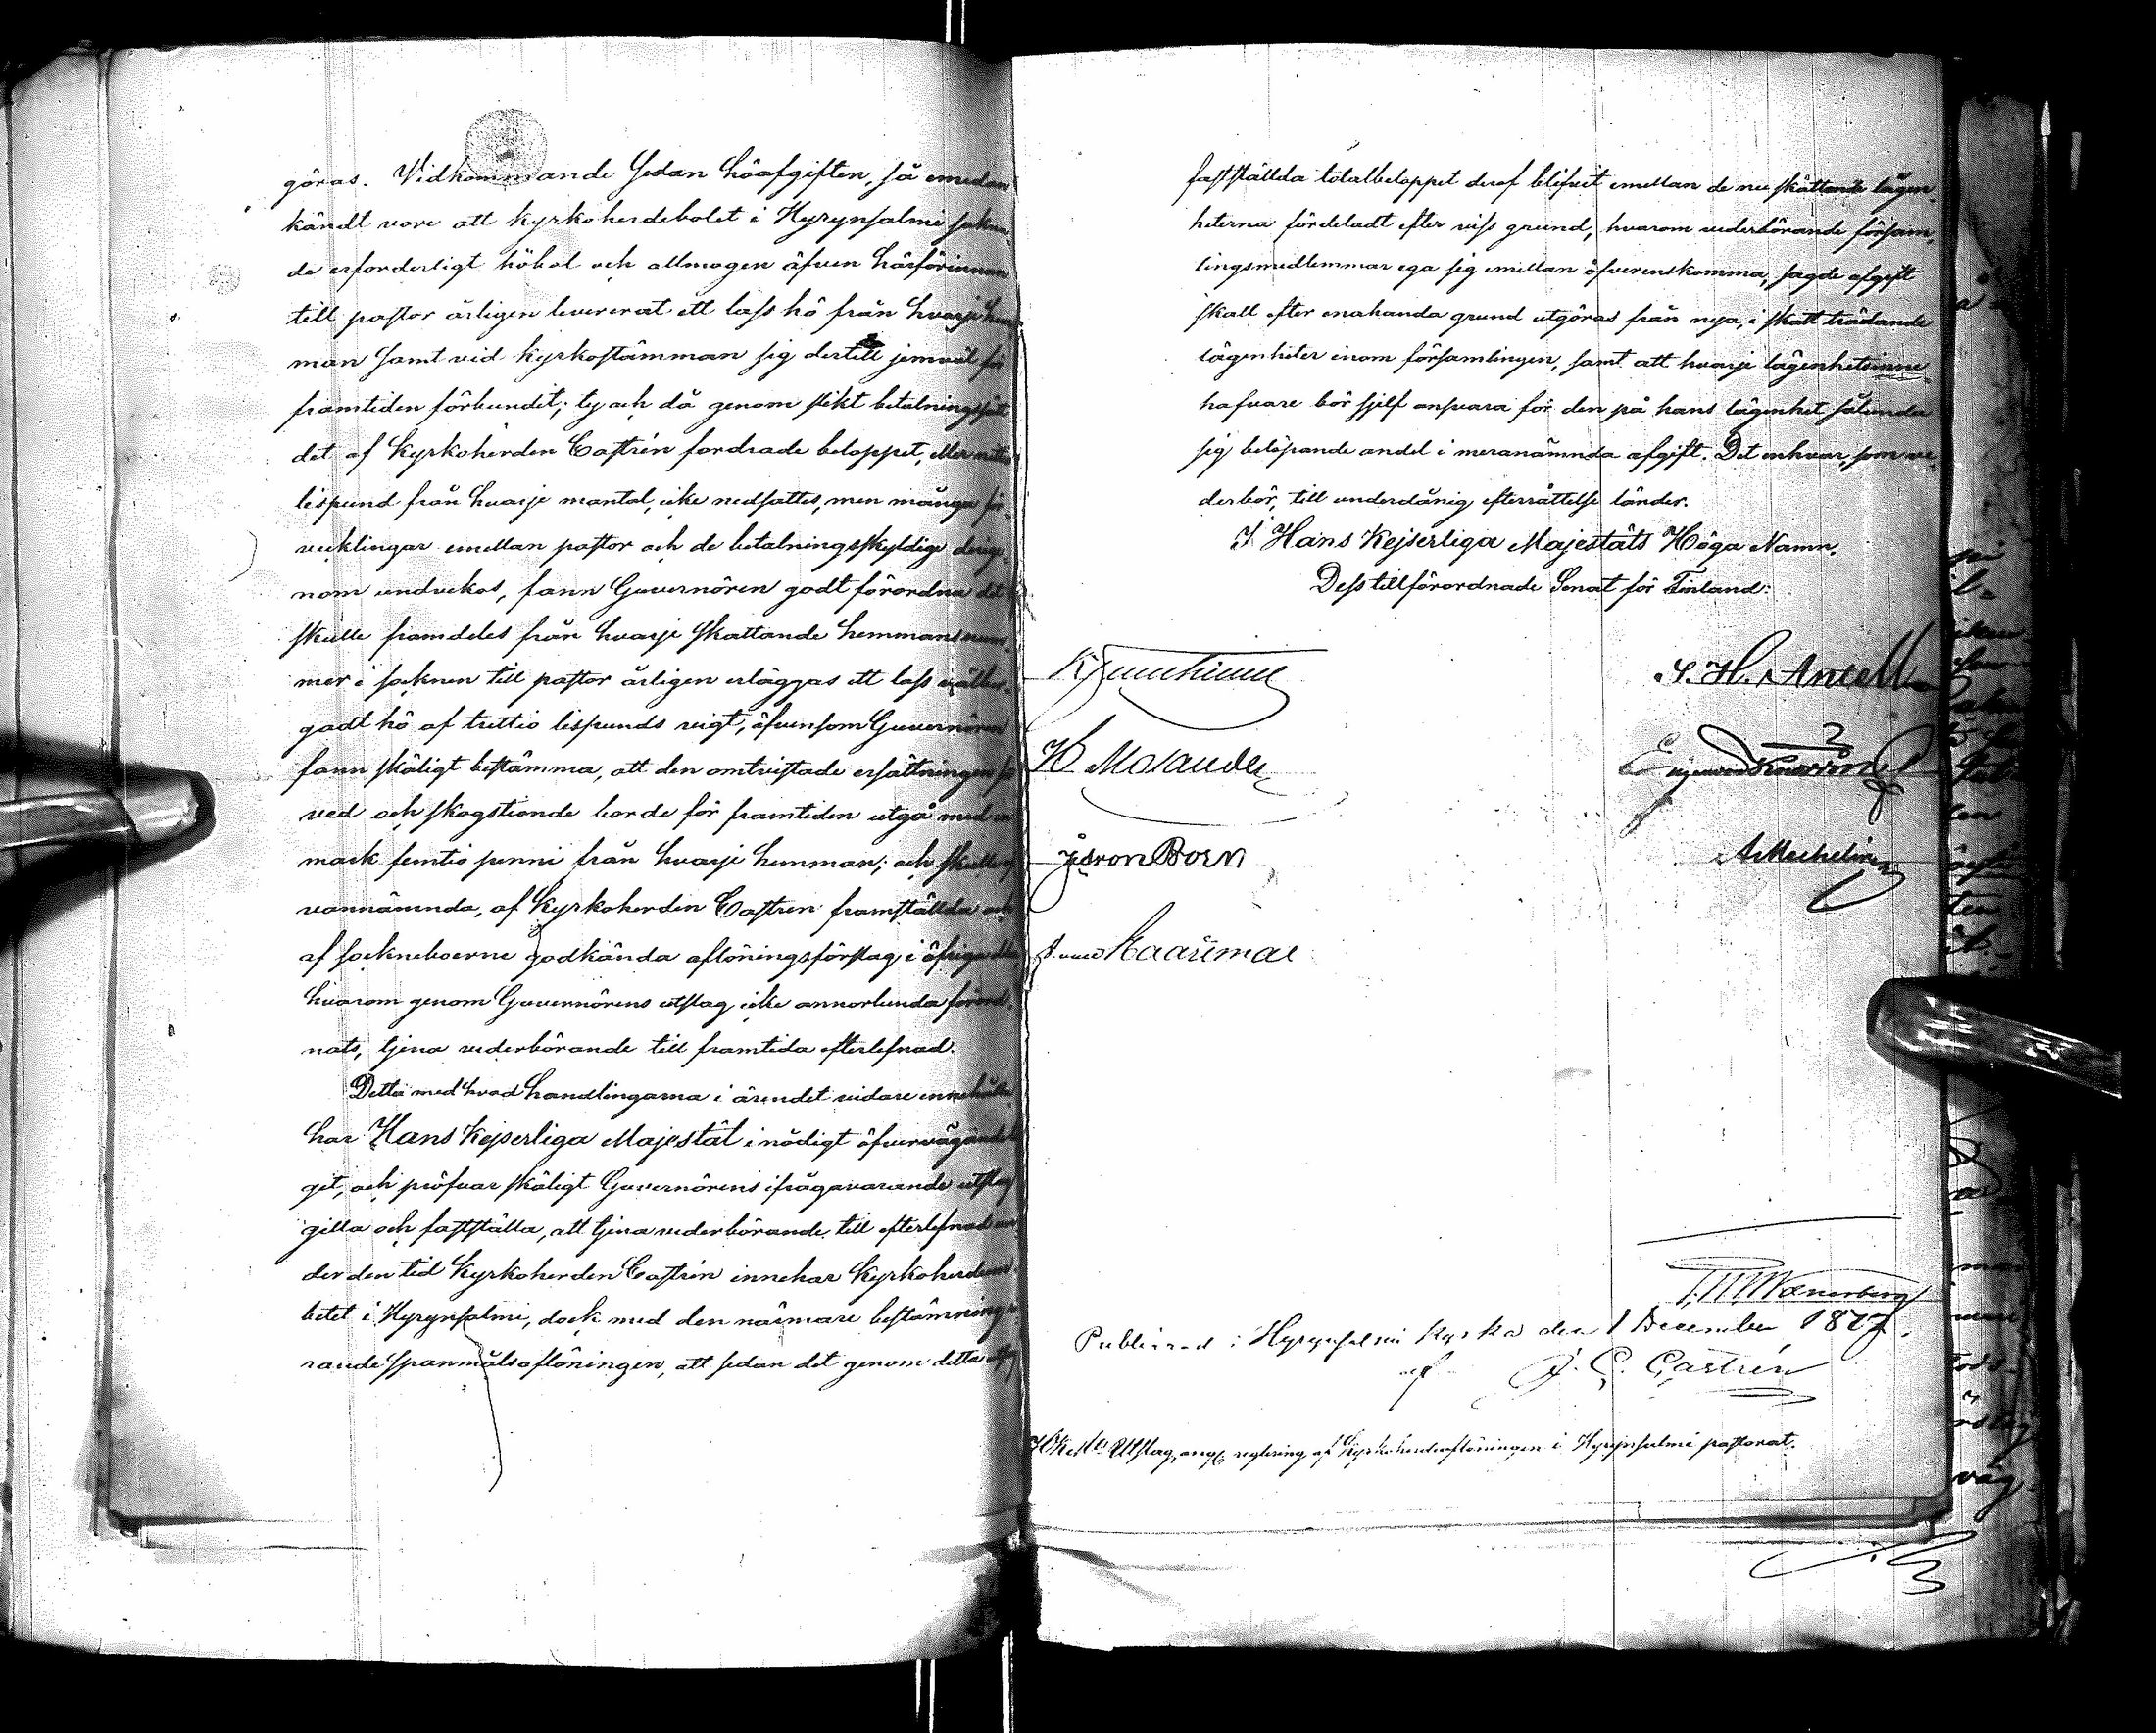 göras. Vidkommande sedan höafgiften, så emedan
kändt vore att kyrkoherdebolet i Hyrynsalmi sakna-
de erforderligt höbol och allmogen äfven härförinnan
till pastor årligen levererat ett lass hö från hvarje hem-
man samt vid kyrkostämman sig dertill jemväl för
framtiden förbundit; ty och då genom slikt betalningssätt
det af Kyrkoherden Castrén fordrade beloppet, eller
lispund från hvarje mantal, icke nedsattes, men många för-
vecklingar emellan pastor och de betalningsskyldige derige-
nom undvekos, fann Guvernören godt förordna det
skulle framdeles från hvarje skattande hemmansnum-
mer i socknen till pastor årligen erläggas ett lass
godt hö af trettio lispunds vigt, äfvensom Guvernören
fann skäligt bestämma, att den omtvistade ersättningen för
ved och skogstionde borde för framtiden utgå med en
mark femtio penni från hvarje hemman; och skulle
vannämnda, af Kyrkoherden Castrén framställda och
af sockneboerne godkända aflöningsförslag i öfriga delar
hvarom genom Guvernörens utslag icke annorlunda förord-
nats, tjena vederbörande till framtida efterlefnad.
Detta med hvad handlingarna i ärendet vidare innehålla
har Hans Kejserliga Majestät i nådigt öfvervägande ta-
git, och pröfvar skäligt Guvernörens ifrågavarande utslag
gilla och fastställa, att tjena vederbörande till efterlefnad un-
der den tid Kyrkoherden Castrén innehar Kyrkoherdeem-
betet i Hyrynsalmi, dock med den närmare bestämning rö-
rande spanmålsaflöningen, att sedan det genom detta utslag
fastställda totalbeloppet deraf blifvit emellan de nu skattande lägen-
heterna fördeladt efter viss grund, hvarom vederbörande försam-
lingsmedlemmar ega sig emellan öfverenskomma, sagde afgift
skall efter enahanda grund utgöras från nya, i skatt trädande
lägenheter inom församlingen, samt att hvarje lägenhetsinne-
hafvare bör sjelf ansvara för den på hans lägenhet sålunda
sig belöpande andel i meranämnda afgift. Det enhvar, som ve-
derbör, till underdånig efterrättelse länder.
I Hans Kejserliga Majestäts Höga Namn,
Dess tillförordnade Senat för Finland:
S. H. Antell
H Molander
Born
A Mechelin
Publicerad i Hyrynsalmi kyrka den 1 December 1877,
af J. C. Castrén
Utslag, ang. reglering af Kyrkoherdeaflöningen i Hyrynsalmi pastorat.